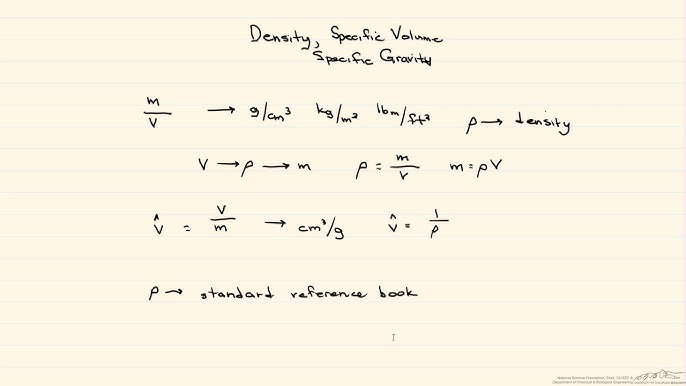 Density, Specific Volume
Specific Gravity
m/V → g/cm³ kg/m³ lbm/ft³ ρ → density
V → ρ → m ρ = m/V m = ρV
V̂ = V/m → cm³/g V̂ = 1/ρ
ρ → standard reference book
National Science Foundation, Shell, CU EEF &
Department of Chemical & Biological Engineering UNIVERSITY OF COLORADO BOULDER